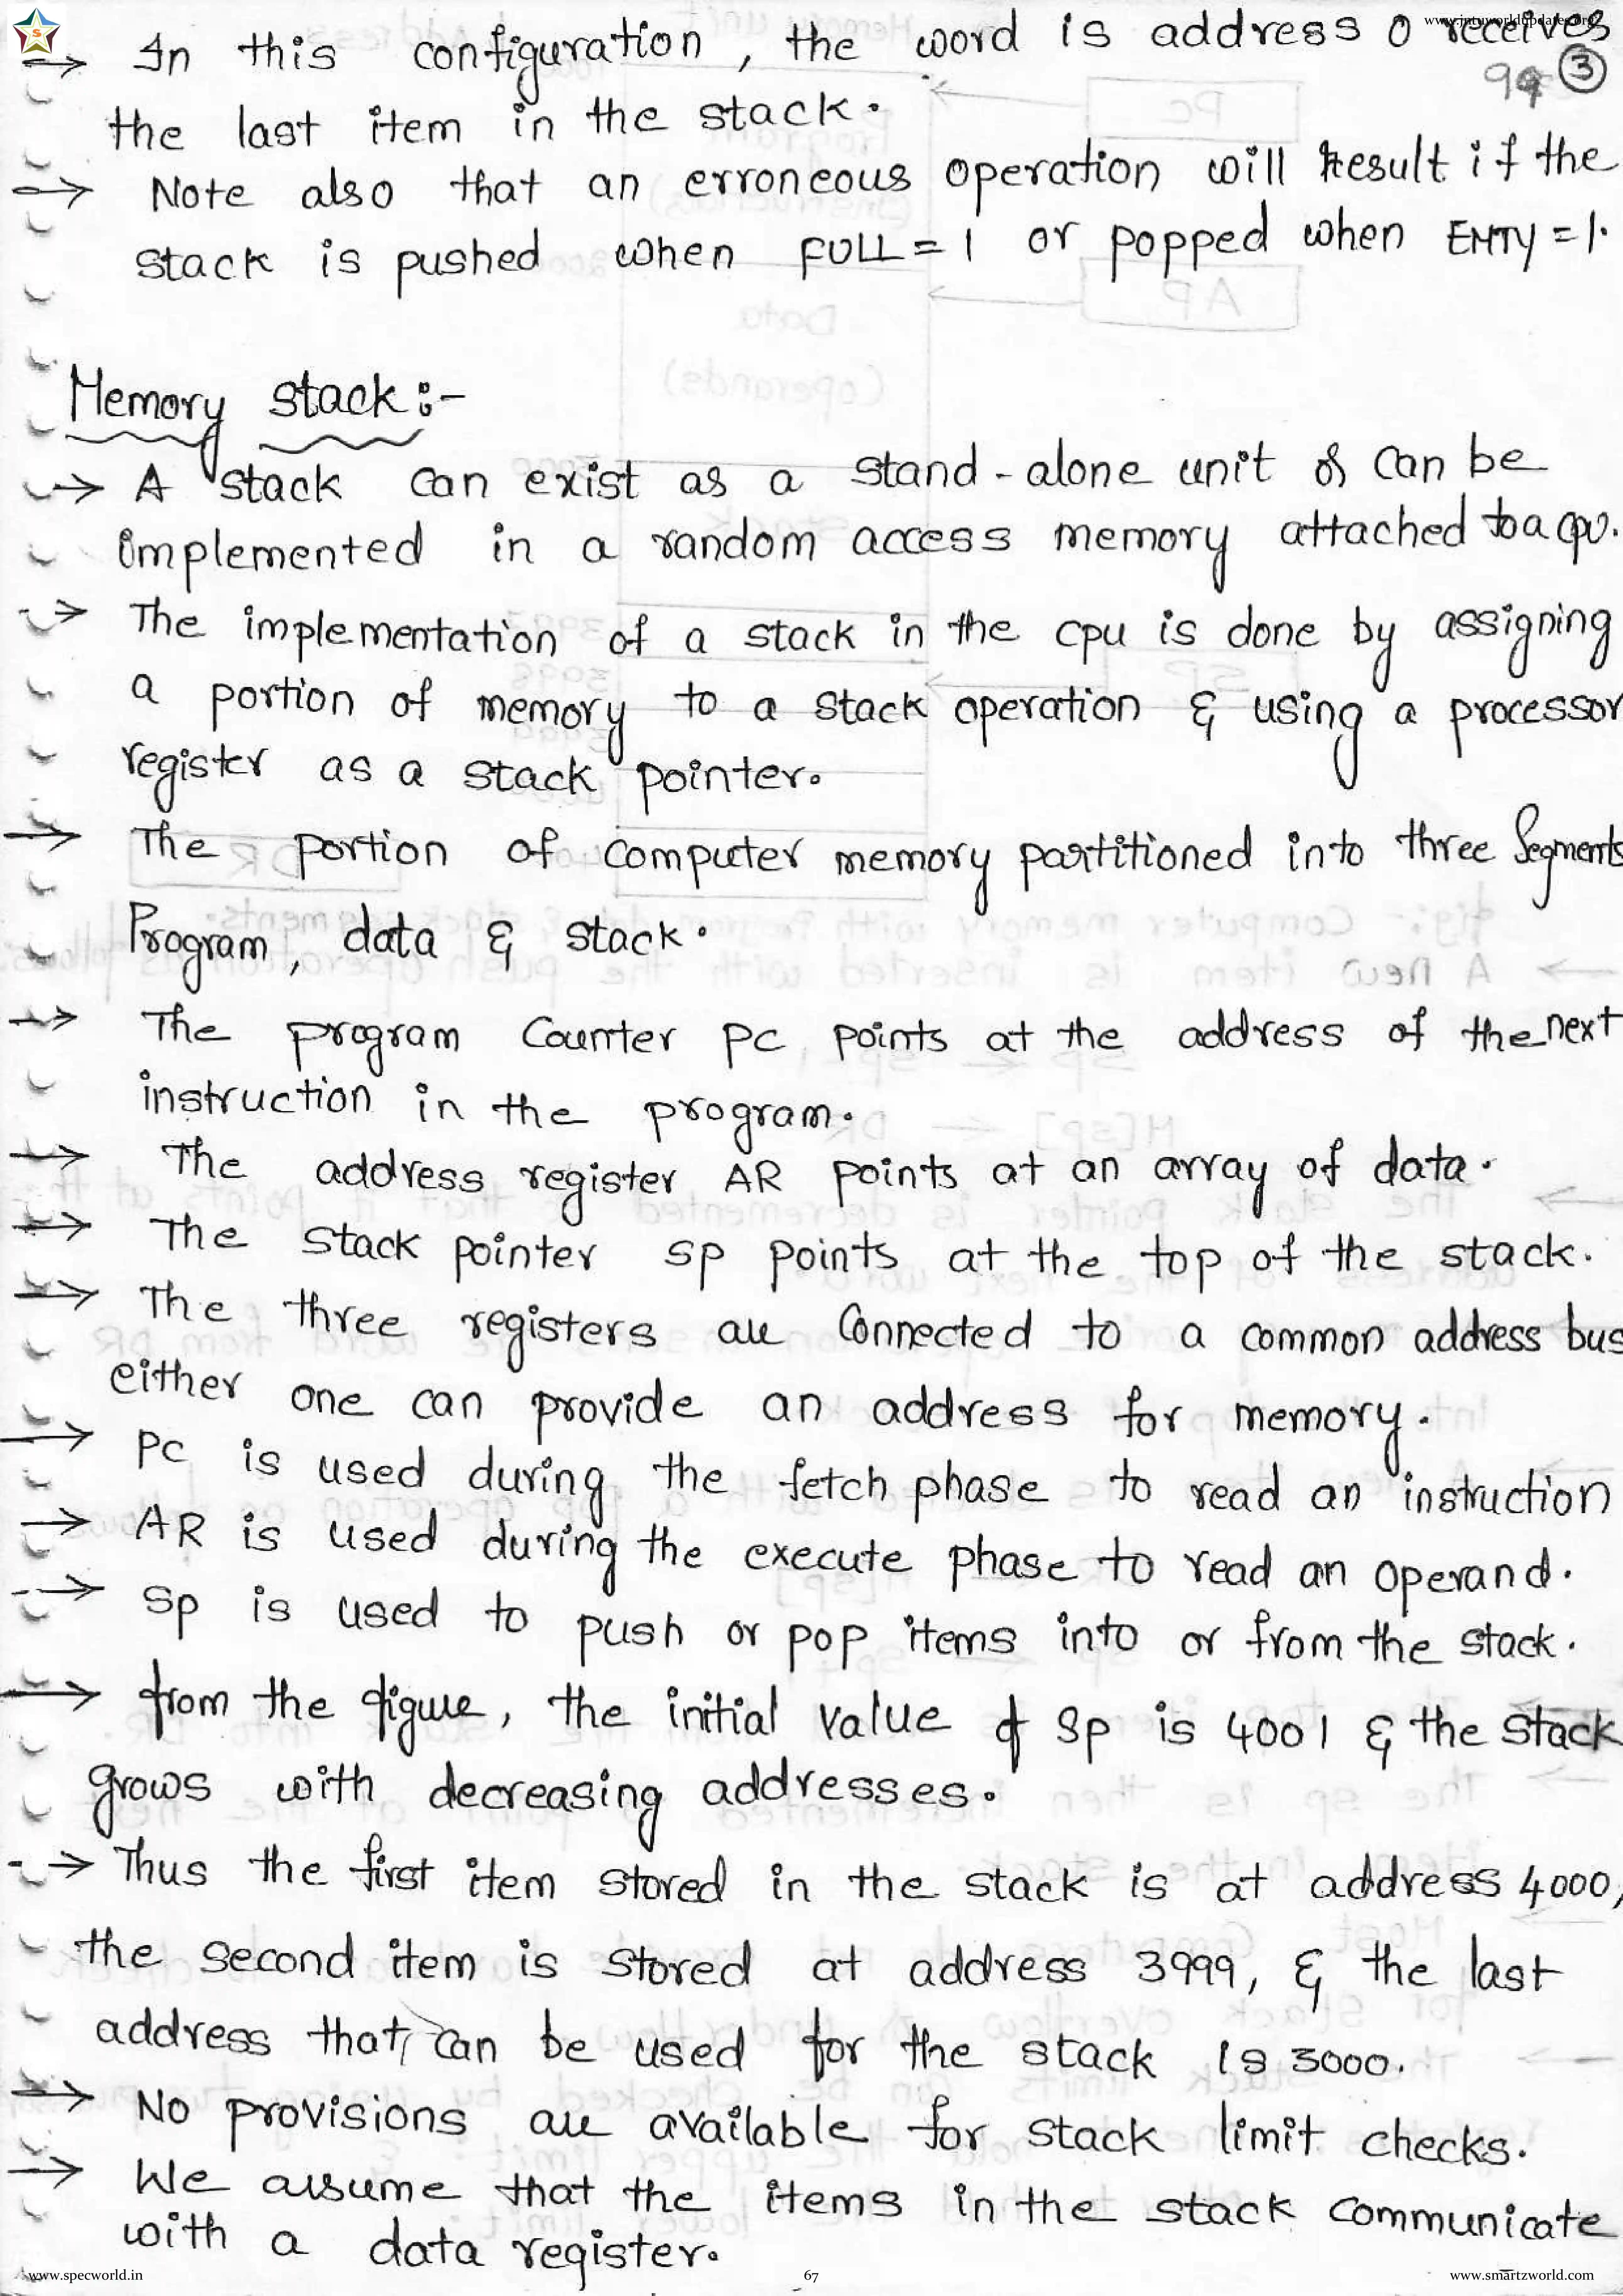 www.jntuworldupdates.org
S
→ In this configuration, the word is address 0 receives
③
the last item in the stack.
→ Note also that an erroneous operation will result if the
stack is pushed when FULL = 1 or popped when EMTY = 1.
Memory stack :-
→ A stack can exist as a stand-alone unit or can be
implemented in a random access memory attached to a cpu.
→ The implementation of a stack in the cpu is done by assigning
a portion of memory to a stack operation & using a processor
register as a stack pointer.
→ The portion of computer memory partitioned into three Segments
Program, data & stack.
→ The program Counter PC points at the address of the next
instruction in the program.
→ The address register AR points at an array of data.
→ The stack pointer SP points at the top of the stack.
→ The three registers are Connected to a common address bus
either one can provide an address for memory.
→ PC is used during the fetch phase to read an instruction
→ AR is used during the execute phase to read an operand.
→ SP is used to push or pop items into or from the stack.
→ from the figure, the initial value of SP is 4001 & the stack
grows with decreasing addresses.
→ Thus the first item stored in the stack is at address 4000,
the second item is stored at address 3999, & the last
address that can be used for the stack is 3000.
→ No provisions are available for stack limit checks.
→ We assume that the items in the stack communicate
with a data register.
www.specworld.in
67
www.smartzworld.com